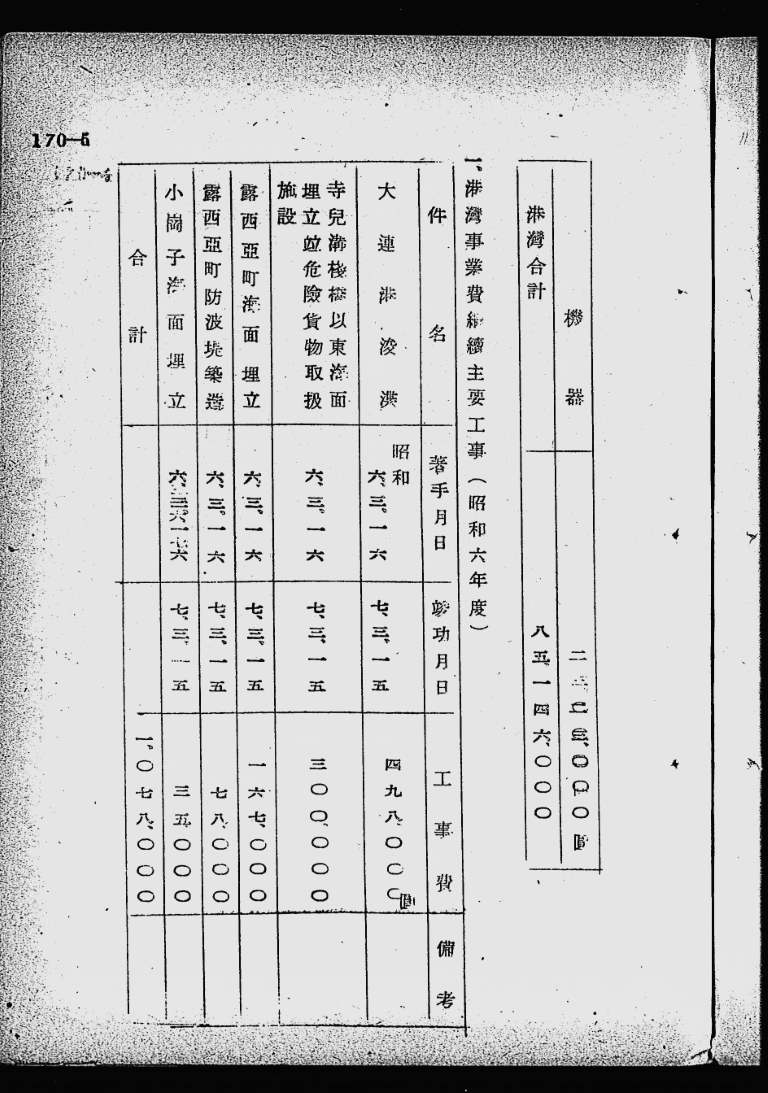 170—5
機器
港灣合計 八五、一四六、〇〇〇
一、港灣事業費繼續主要工事（昭和六年度）
件名 著手月日 竣功月日 工事費 備考
大連港浚渫 昭和六、三、一六 七、三、一五 四九八、〇〇〇圓
寺兒溝棧橋以東海面
埋立竝危險貨物取扱
施設 六、三、一六 七、三、一五 三〇〇、〇〇〇
露西亞町海面埋立 六、三、一六 七、三、一五 一六七、〇〇〇
露西亞町防波堤築造 六、三、一六 七、三、一五 七八、〇〇〇
小崗子海面埋立 七、三、一五 三五、〇〇〇
合計 一、〇七八、〇〇〇